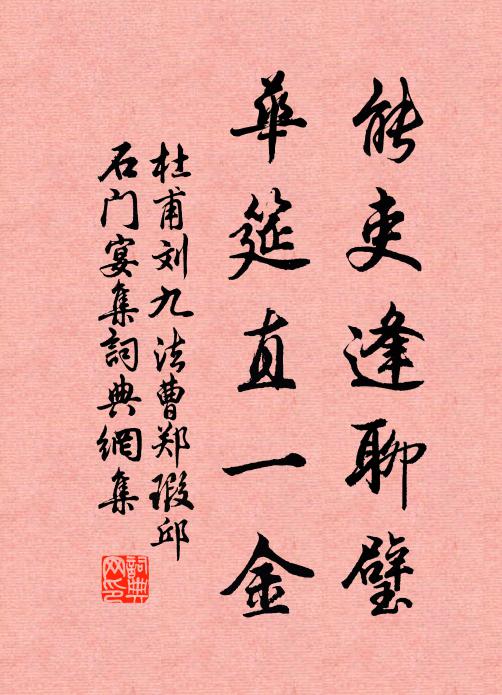 能吏逢聊璧
華筵直一金
杜甫刘九法曹郑瑕邱
石门宴集詞典網集
詞典网印